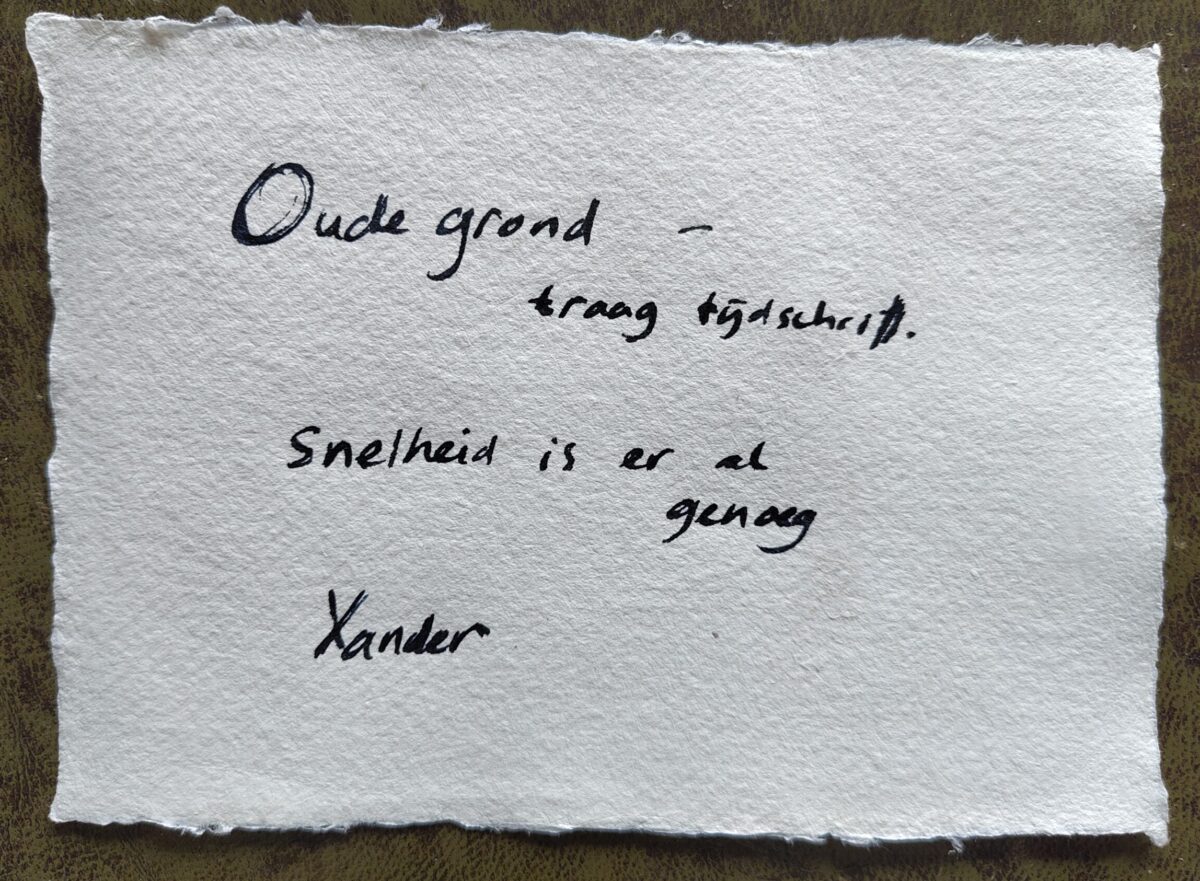 Oude grond -
traag tijdschrift.
Snelheid is er al
genoeg
Xander